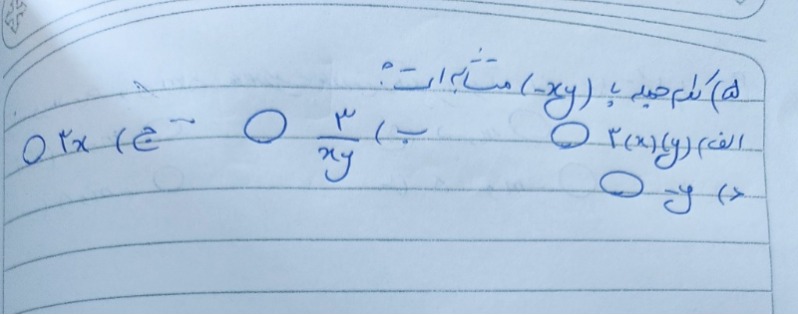 ۵) کدام جمله با (-xy) متشابه است؟
الف) ۲(x)(y) ب) ۳/xy ج) ۲x
د) -y